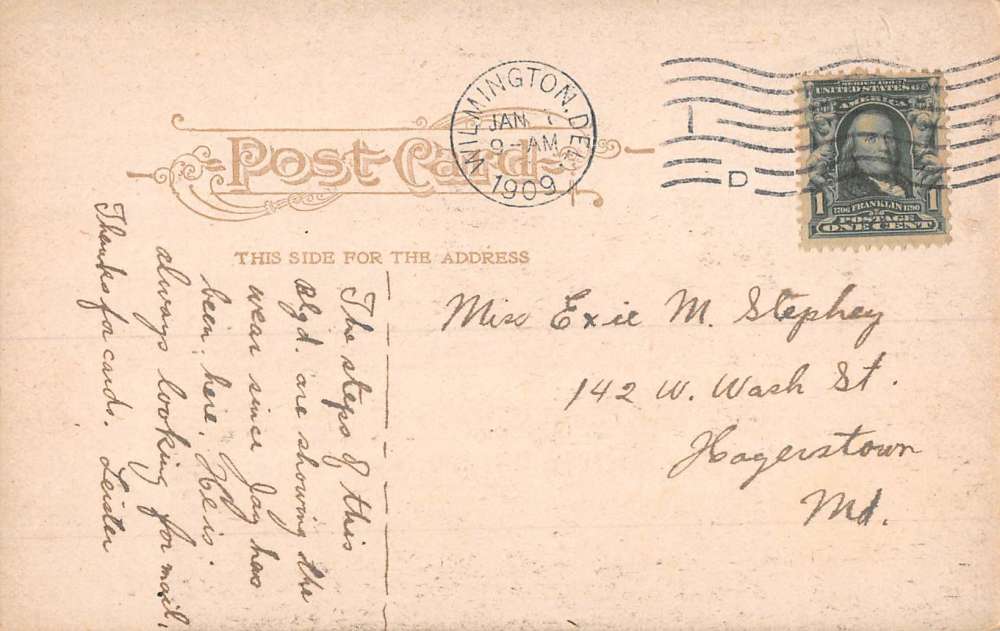 Post Card
WILMINGTON, DEL.
JAN
9-AM
1909
D
SERIES 1902
UNITED STATES OF
AMERICA
1706 FRANKLIN 1790
1 POSTAGE 1
ONE CENT
THIS SIDE FOR THE ADDRESS
Miss Exie M. Stephey
142 W. Wash St.
Hagerstown
Md.
The steps of this
Blgd. are showing the
wear since Jay has
been here. He is
always looking for mail.
Thanks for cards. Leister